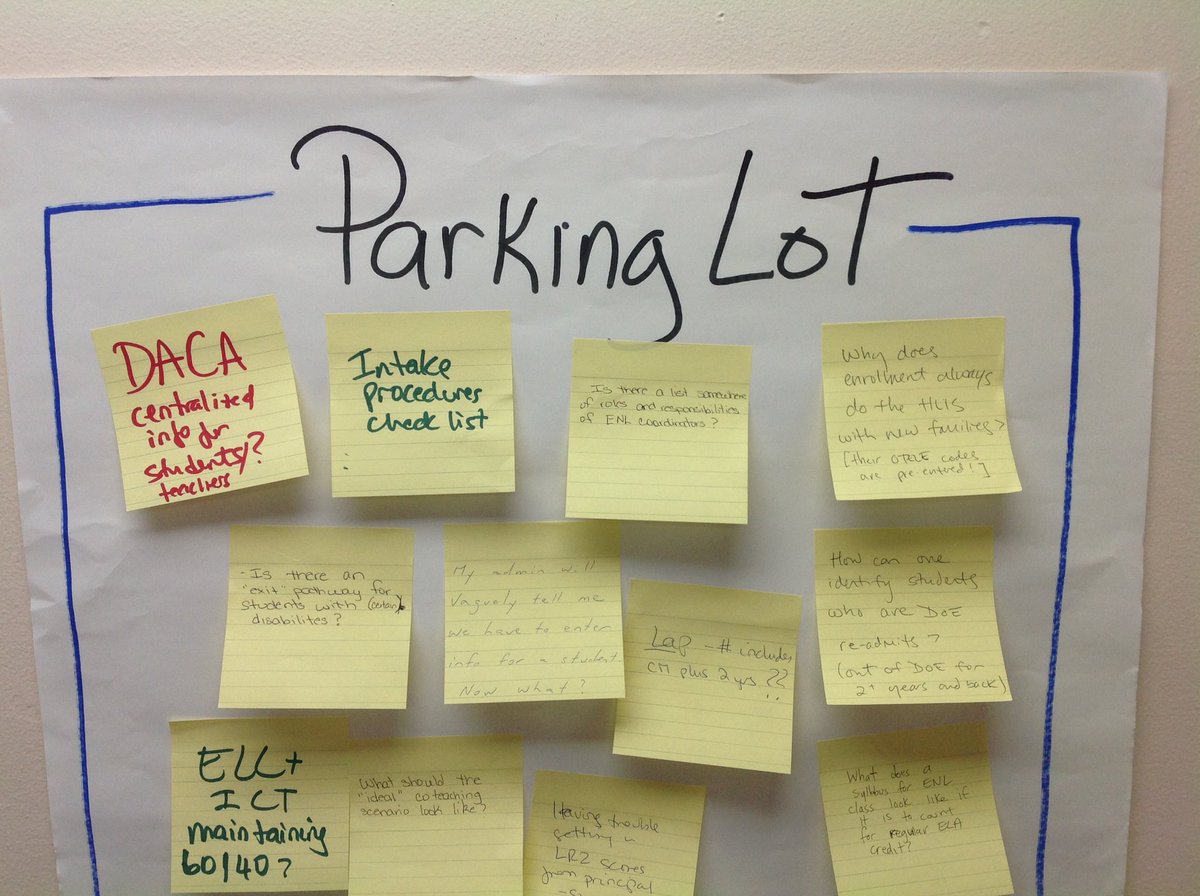 Parking Lot
DACA
centralized
info for
students/?
teachers
Intake
procedures
check list
Is there a list somewhere
of roles and responsibilities
of ENL coordinators?
Why does
enrollment always
do the HLIS
with new families?
[their OTELE codes
are pre-entered!]
- Is there an
"exit" pathway for
students with (certain)
disabilites?
My admin will
vaguely tell me
we have to enter
info for a student.
Now what?
Lap - # includes
CM plus 2 yrs ??
!!
How can one
identify students
who are DOE
re-admits?
(out of DOE for
2+ years and back)
ELL+
ICT
maintaining
60/40?
What should the
"ideal" coteaching
scenario look like?
Having trouble
getting
LR2 scores
from principal
What does a
syllabus for ENL
class look like if
it is to count
for regular ELA
credit?